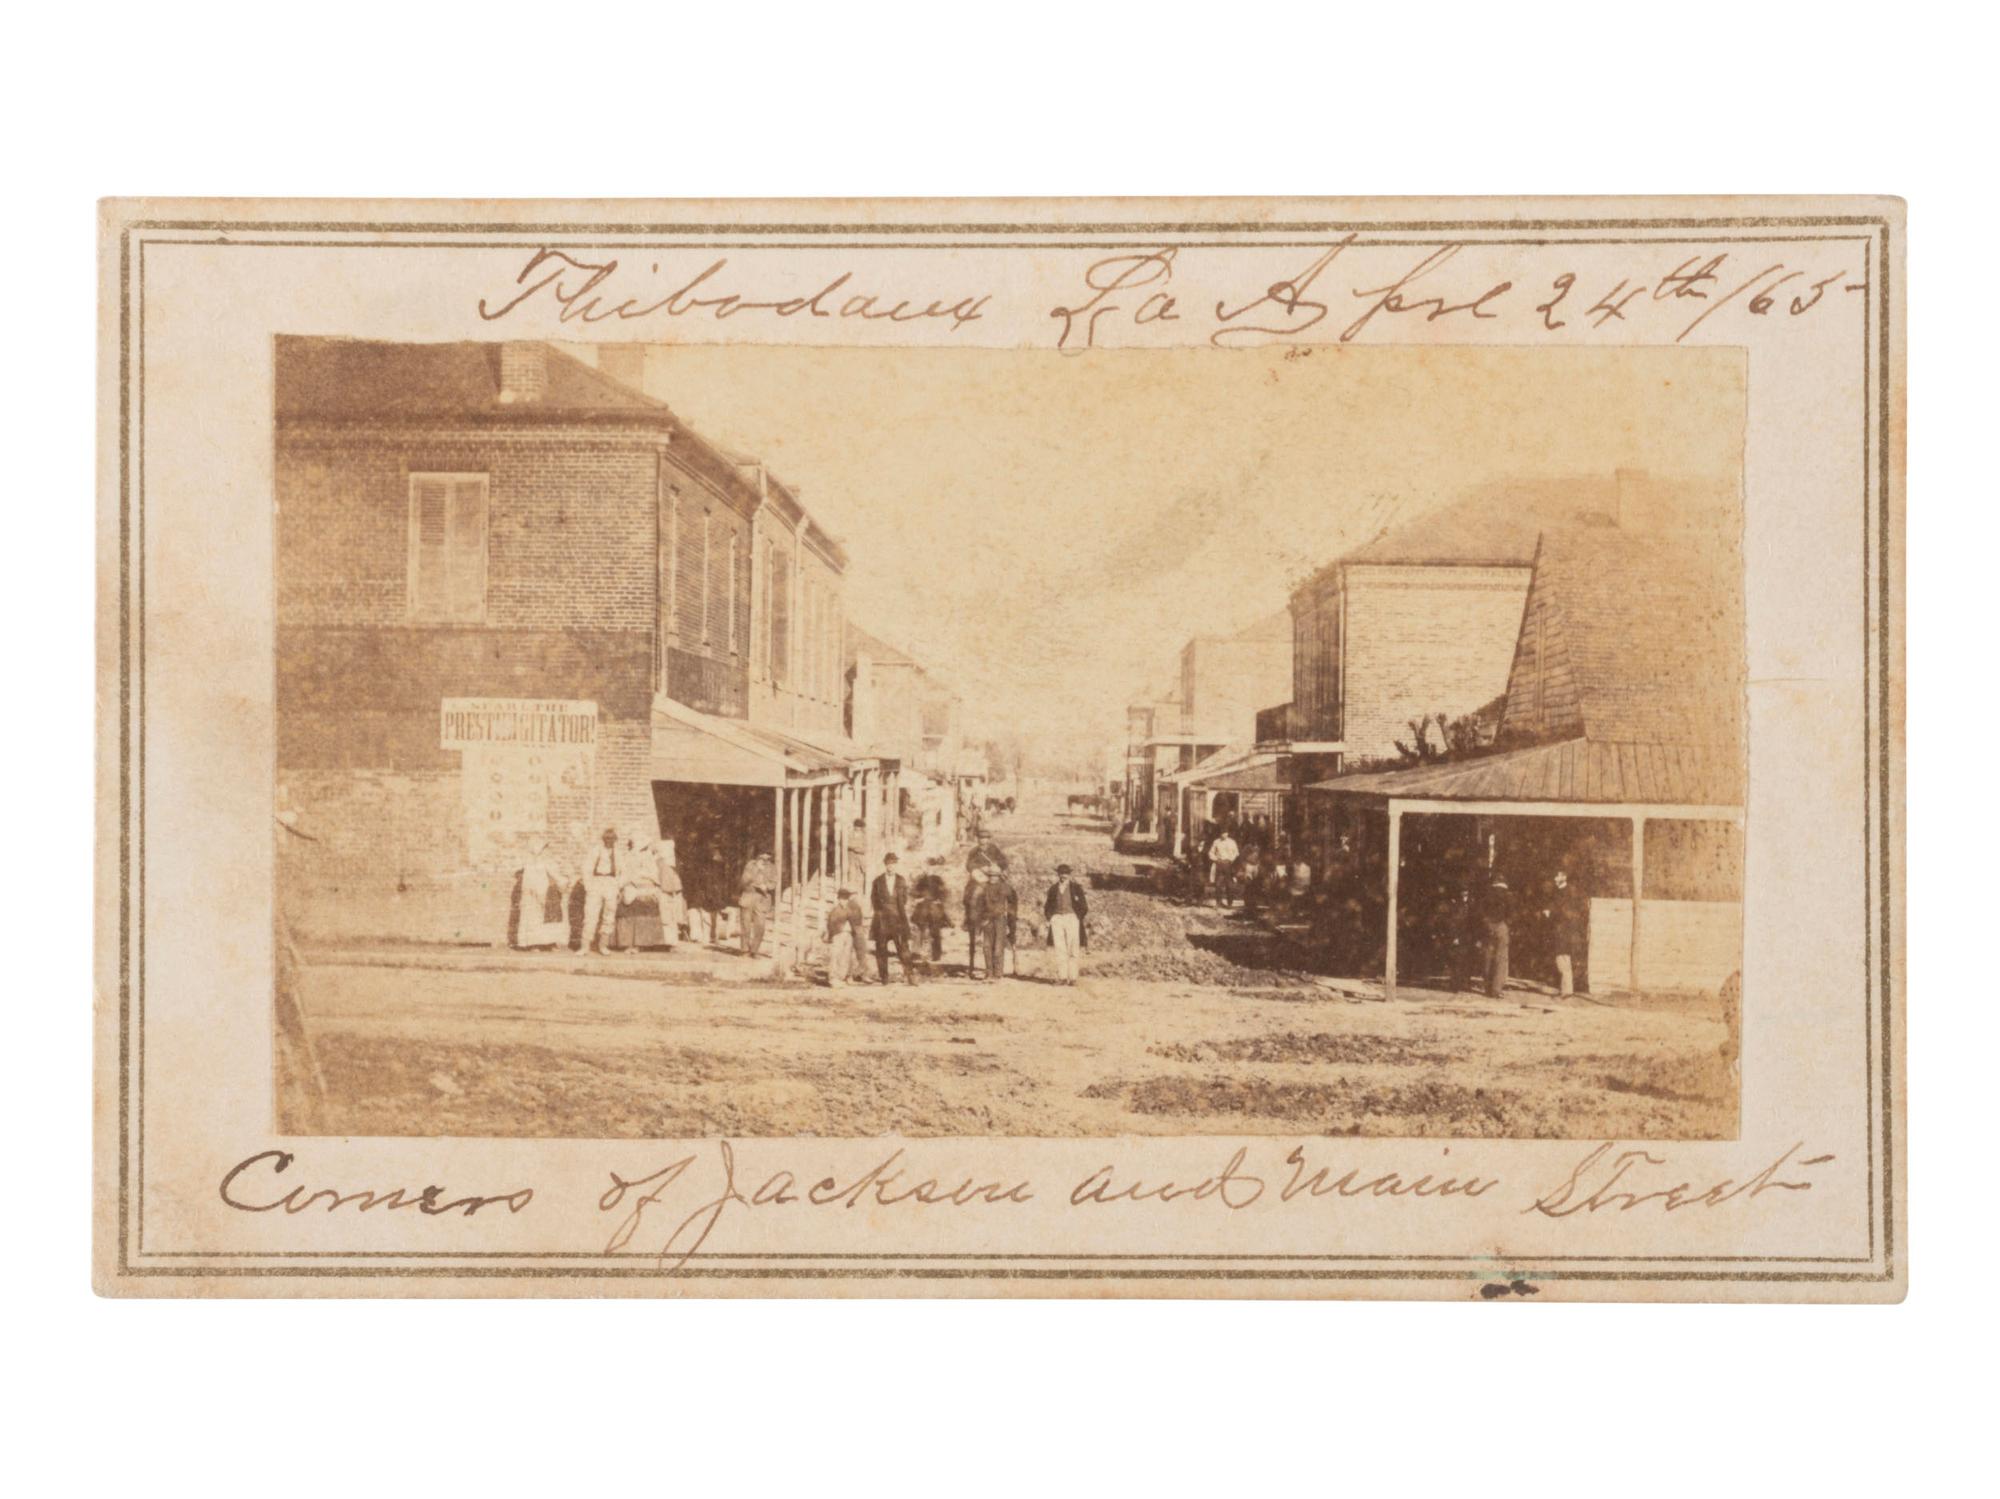 Thibodaux La April 24th/65
THE
PRESTIDIGITATOR!
Corners of Jackson and Main Street